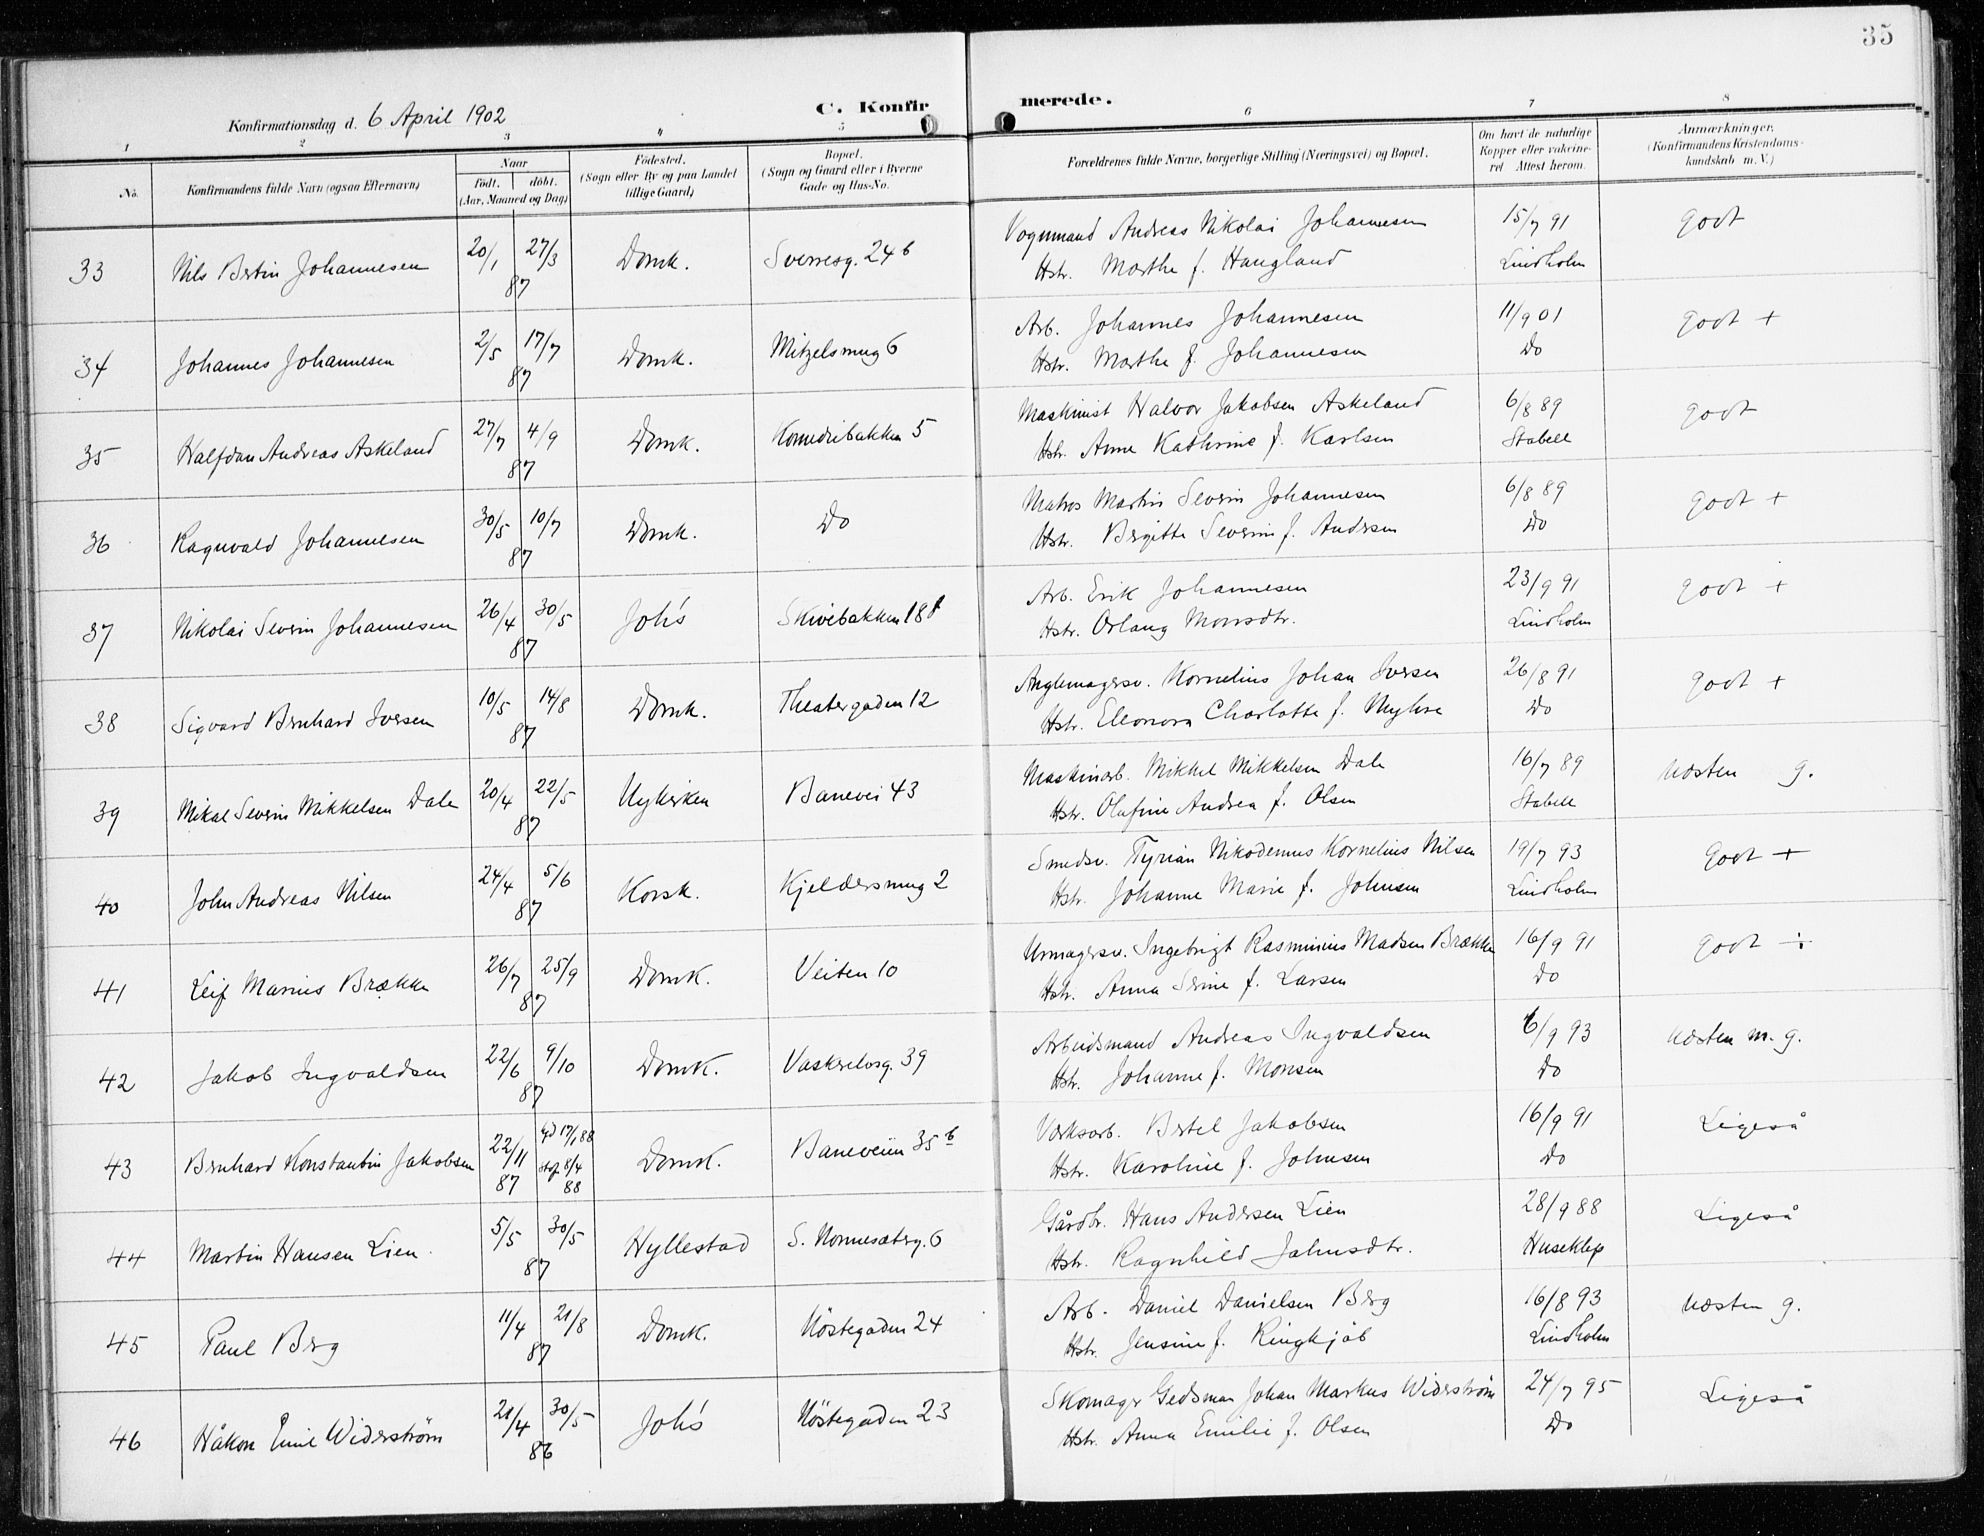 35
Konfirmationsdag d. 6 April 1902
C. Konfirmerede.
1 2 3 4 5 6 7 8
No.
Konfirmandens fulde Navn (ogsaa Efternavn)
Naar
født. døbt.
(Aar, Maaned og Dag)
Fødested.
(Sogn eller By og paa Landet
tillige Gaard)
Bopæl.
(Sogn og Gaard eller i Byerne
Gade og Hus-No.
Forældrenes fulde Navne, borgerlige Stilling (Næringsvei) og Bopæl.
Om havt de naturlige
Kopper eller vakcine-
ret Attest herom.
Anmærkninger.
(Konfirmandens Kristendoms-
kundskab m. V.)
33 Nils Bertin Johannesen 20/1 27/3 87 Domk. Sverresg. 24 b Vognmand Andreas Nikolai Johannesen 15/7 91 godt
Hstr. Marthe f. Haugland Lindholm
34 Johannes Johannesen 2/5 17/7 87 Domk. Mitzelsmug 6 Arb. Johannes Johannesen 11/9 01 godt +
Hstr. Marthe f. Johannesen Do
35 Halfdan Andreas Askeland 27/7 4/9 87 Domk. Komediebakken 5 Maskinist Halvor Jakobsen Askeland 6/8 89 godt
Hstr. Anne Kathrine f. Karlsen Stabell
36 Ragnvald Johannesen 30/5 10/7 87 Domk. Do Matros Martin Severin Johannesen 6/8 89 godt +
Hstr. Birgitte Severine f. Andersen Do
37 Nikolai Severin Johannesen 26/4 30/5 87 Joh's Skivebakken 18 Arb. Erik Johannesen 23/9 91 godt +
Hstr. Orlaug Monsdtr. Lindholm
38 Sigvard Bernhard Iversen 10/5 14/8 87 Domk. Theatergaden 12 Anglemagersv. Kornelius Johan Iversen 26/8 91 godt +
Hstr. Eleonora Charlotte f. Myhre Do
39 Mikal Severin Mikkelsen Dale 20/4 22/5 87 Nykirken Banevei 43 Maskinarb. Mikkel Mikkelsen Dale 16/7 89 Næsten g.
Hstr. Olafine Andrea f. Olsen Stabell
40 John Andreas Nilsen 24/4 5/6 87 Korsk. Kjeldersmug 2 Smedsv. Tyrian Nikodemus Kornelius Nilsen 19/7 93 godt +
Hstr. Johanne Marie f. Johnsen Lindholm
41 Leif Marius Brække 26/7 25/9 87 Domk. Veiten 10 Urmagersv. Ingebrigt Rasminius Madsen Brække 16/9 91 godt ÷
Hstr. Anna Serine f. Larsen Do
42 Jakob Ingvaldsen 22/6 9/10 87 Domk. Vaskrelvsg. 39 Arbeidsmand Andreas Ingvaldsen 6/9 93 Næsten m. g.
Hstr. Johanne f. Monsen Do
43 Bernhard Konstantin Jakobsen 22/11 87 17/1 88 8/4 88 Domk. Baneveien 35 b Værksarb. Bertel Jakobsen 16/9 91 Ligeså
Hstr. Karoline f. Johnsen Do
44 Martin Hansen Lien. 5/5 30/5 87 Hyllestad S. Nonnesæterg. 6 Gårdbr. Hans Andersen Lien 28/9 88 Ligeså
Hstr. Ragnhild Jahnsdtr. Huseklep
45 Paul Berg 11/4 21/8 87 Domk. Nöstegaden 24 Arb. Daniel Danielsen Berg 16/8 93 Næsten g.
Hstr. Jensine f. Ringkjöb Lindholm
46 Håkon Emil Widerström 21/4 30/5 86 Joh's Nöstegaden 23 Skomagr Gedsman Johan Markus Widerström 24/7 95 Ligeså
Hstr. Anna Emilie f. Olsen Do